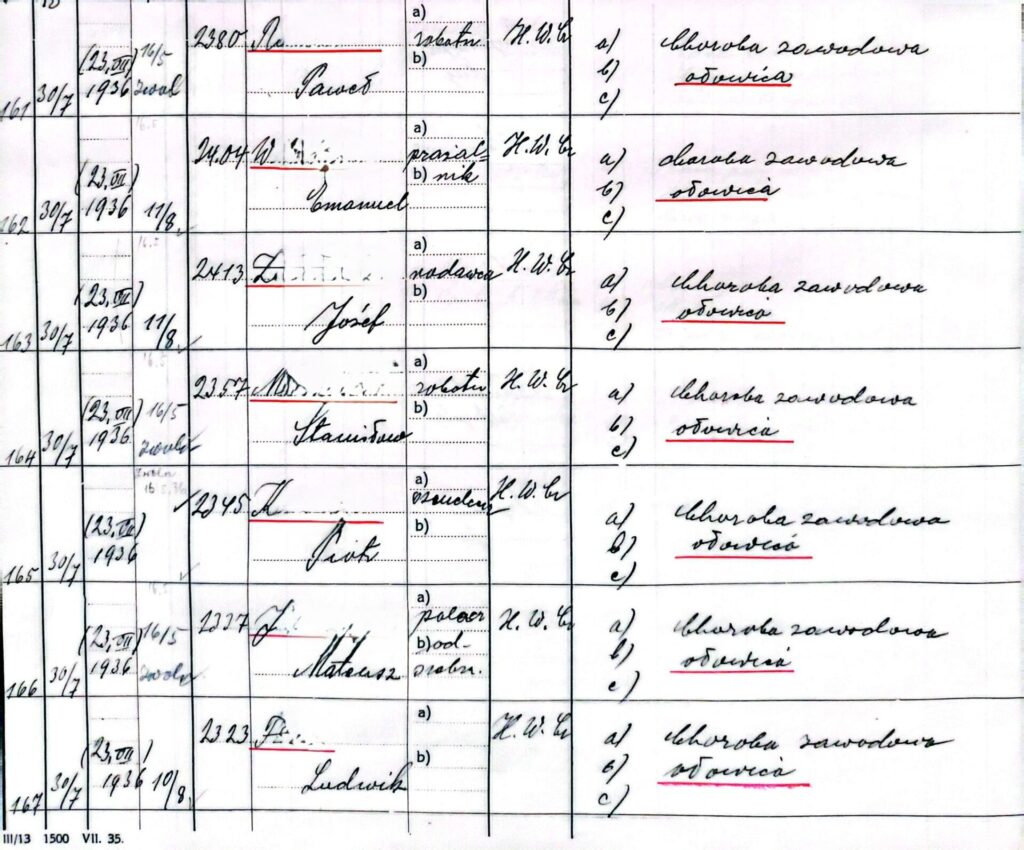 161 30/7 (23.VII) 1936 16/5 zwol 2380 R a) robotn b) H.W.Cr a) Choroba zawodowa
Paweł b) ołowica
c)
162 30/7 (23.VII) 1936 11/8 2404 W a) prażal- b) nik H.W.Cr a) choroba zawodowa
Emanuel b) ołowica
c)
163 30/7 (23.VII) 1936 11/8 2413 a) nadawca b) H.W.Cr a) Choroba zawodowa
Józef b) ołowica
c)
164 30/7 (23.VII) 1936 16/5 zwoln 2357 a) robotn b) H.W.Cr a) Choroba zawodowa
Stanisław b) ołowica
c)
165 30/7 (23.VII) 1936 zwoln 16.5.36 2345 K a) b) H.W.Cr a) Choroba zawodowa
Piotr b) ołowica
c)
166 30/7 (23.VII) 1936 16/5 zwoln 2337 a) palacz b) od- H.W.Cr a) Choroba zawodowa
Mateusz b) ołowica
c)
167 30/7 (23.VII) 1936 10/8 2323 F a) b) H.W.Cr a) Choroba zawodowa
Ludwik b) ołowica
c)
III/13 1500 VII. 35.